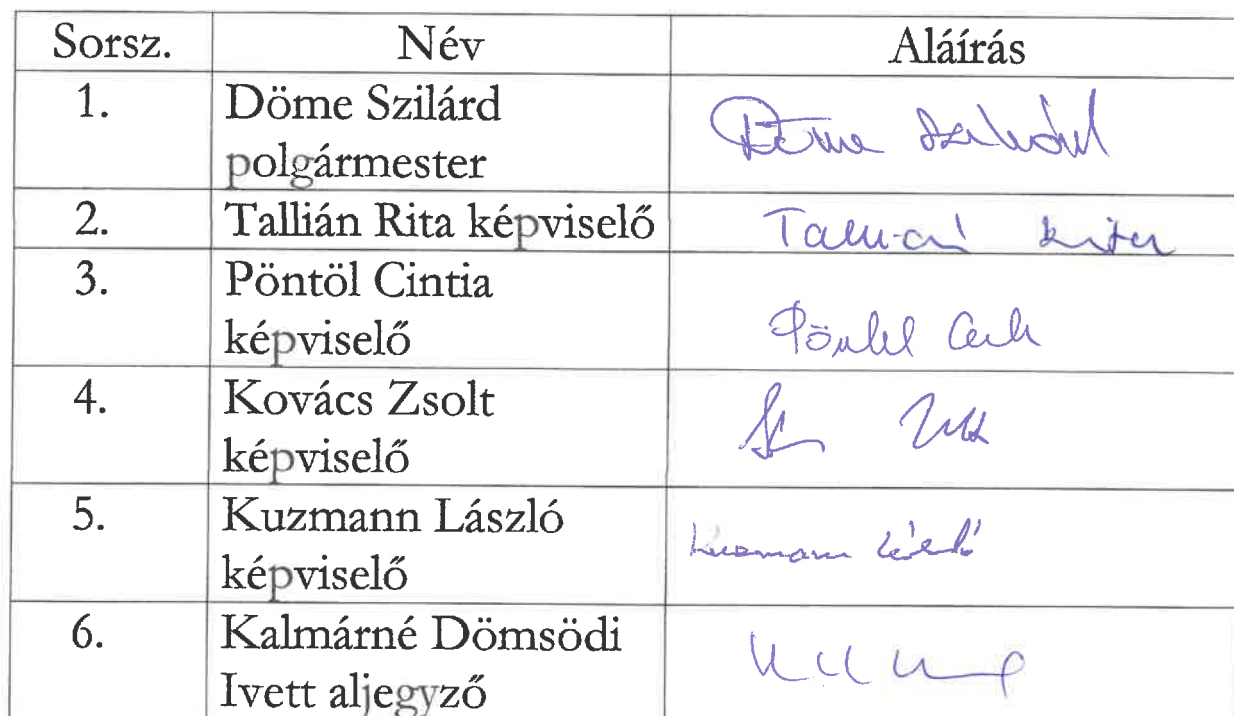 Sorsz. Név Aláírás
1. Döme Szilárd
polgármester
Döme Szilárd
2. Tallián Rita képviselő
Tallián Rita
3. Pöntöl Cintia
képviselő
4. Kovács Zsolt
képviselő
5. Kuzmann László
képviselő
Kuzmann László
6. Kalmárné Dömsödi
Ivett aljegyző